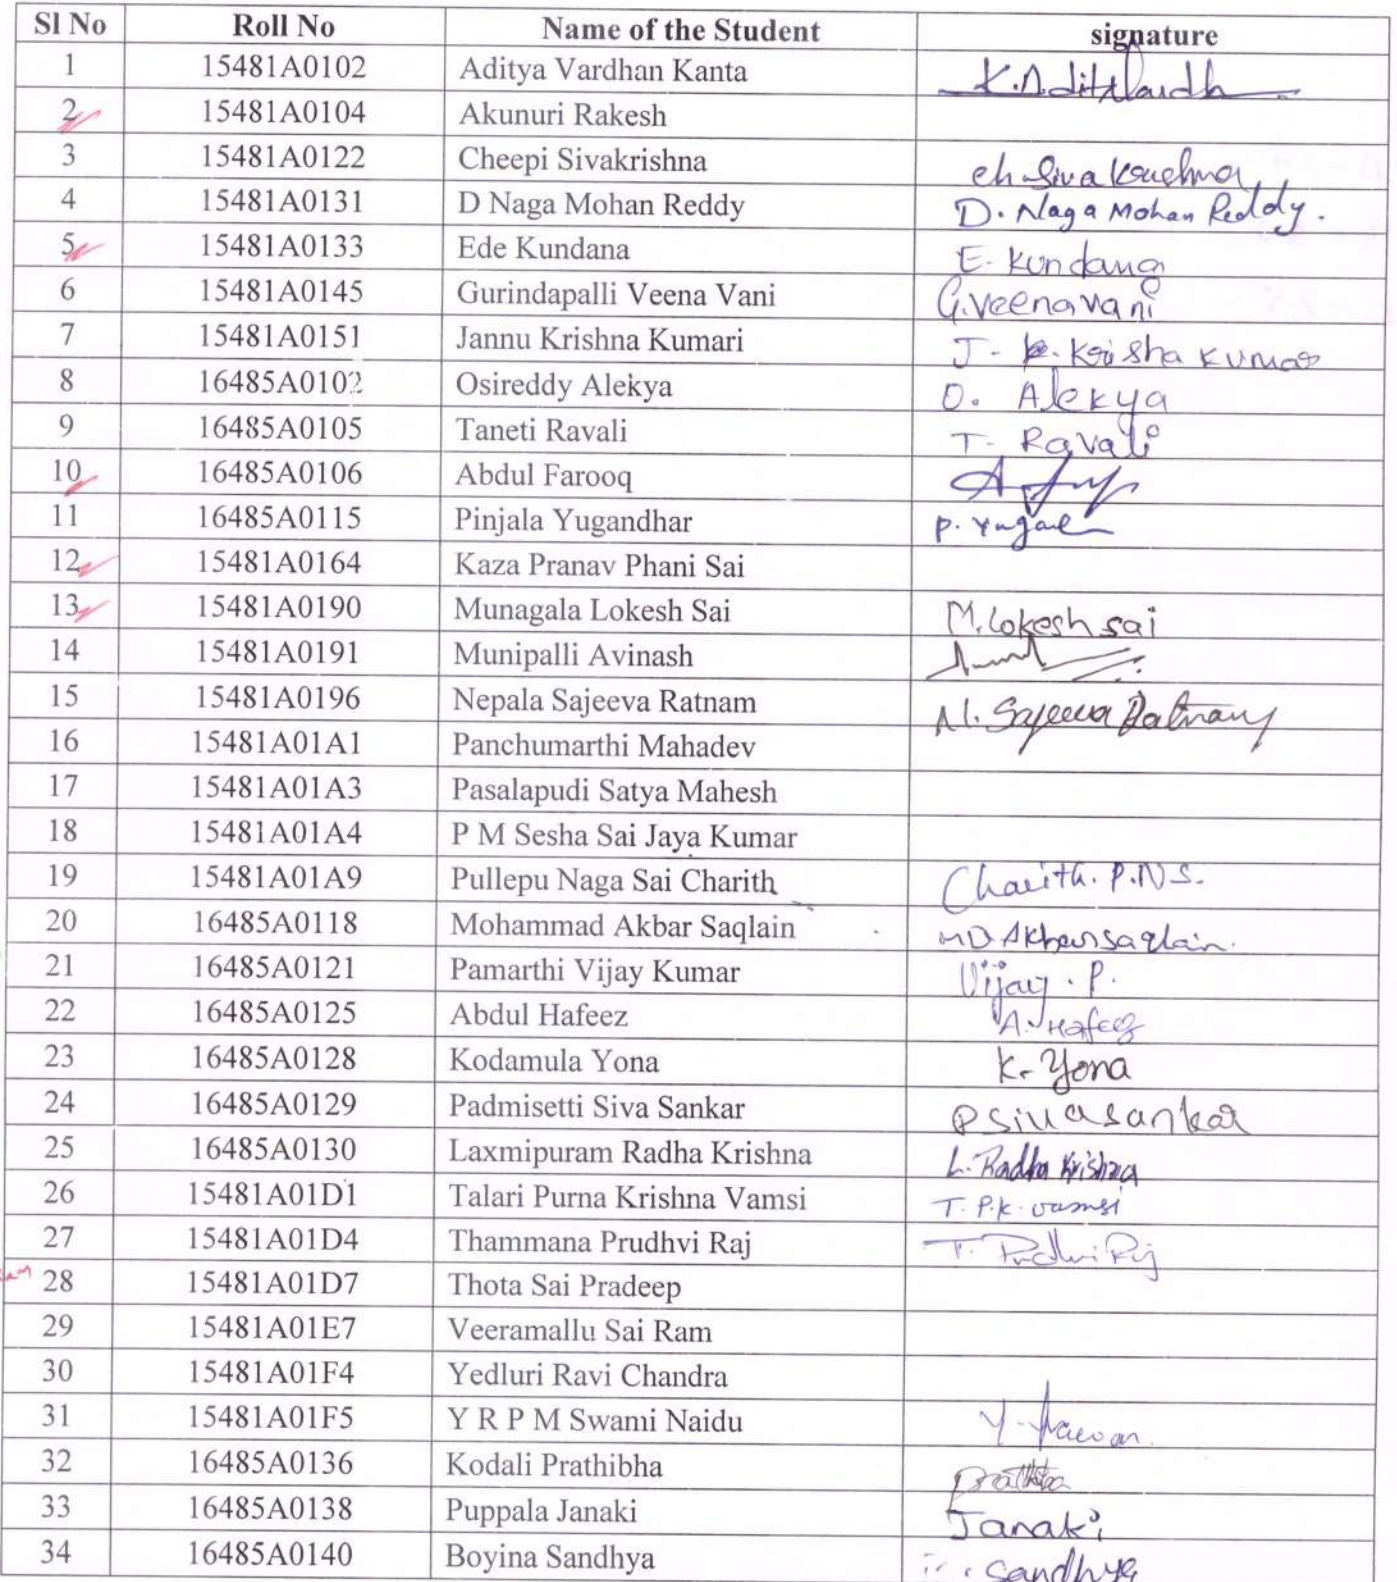 Sl No Roll No Name of the Student signature
1 15481A0102 Aditya Vardhan Kanta
2 15481A0104 Akunuri Rakesh
3 15481A0122 Cheepi Sivakrishna ch. Siva Krishna
4 15481A0131 D Naga Mohan Reddy D. Naga Mohan Reddy.
5 15481A0133 Ede Kundana E. Kundana
6 15481A0145 Gurindapalli Veena Vani G.Veena vani
7 15481A0151 Jannu Krishna Kumari
8 16485A0102 Osireddy Alekya O. Alekya
9 16485A0105 Taneti Ravali T. Ravali
10 16485A0106 Abdul Farooq
11 16485A0115 Pinjala Yugandhar
12 15481A0164 Kaza Pranav Phani Sai
13 15481A0190 Munagala Lokesh Sai M. Lokesh sai
14 15481A0191 Munipalli Avinash
15 15481A0196 Nepala Sajeeva Ratnam N. Sajeeva Ratnam
16 15481A01A1 Panchumarthi Mahadev
17 15481A01A3 Pasalapudi Satya Mahesh
18 15481A01A4 P M Sesha Sai Jaya Kumar
19 15481A01A9 Pullepu Naga Sai Charith Charith. P.N S.
20 16485A0118 Mohammad Akbar Saqlain MD Akbar saqlain.
21 16485A0121 Pamarthi Vijay Kumar Vijay . P.
22 16485A0125 Abdul Hafeez A. Hafeez
23 16485A0128 Kodamula Yona K. Yona
24 16485A0129 Padmisetti Siva Sankar P Siva sankar
25 16485A0130 Laxmipuram Radha Krishna L. Radha Krishna
26 15481A01D1 Talari Purna Krishna Vamsi T. P.K. vamsi
27 15481A01D4 Thammana Prudhvi Raj T. Prudhvi Raj
28 15481A01D7 Thota Sai Pradeep
29 15481A01E7 Veeramallu Sai Ram
30 15481A01F4 Yedluri Ravi Chandra
31 15481A01F5 Y R P M Swami Naidu
32 16485A0136 Kodali Prathibha
33 16485A0138 Puppala Janaki Janaki
34 16485A0140 Boyina Sandhya Sandhya